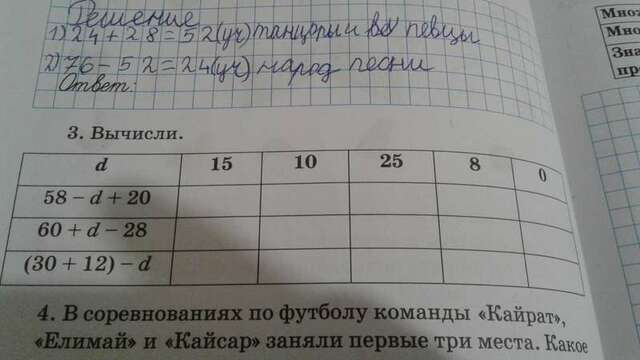 Решение
1) 24 + 28 = 52 (уч) танцоры и певцы
2) 76 - 52 = 24 (уч) народ песни
Ответ:
Множ
Мно
Зна
пр
3. Вычисли.
d 15 10 25 8 0
58 − d + 20
60 + d − 28
(30 + 12) − d
4. В соревнованиях по футболу команды «Кайрат»,
«Елимай» и «Кайсар» заняли первые три места. Какое